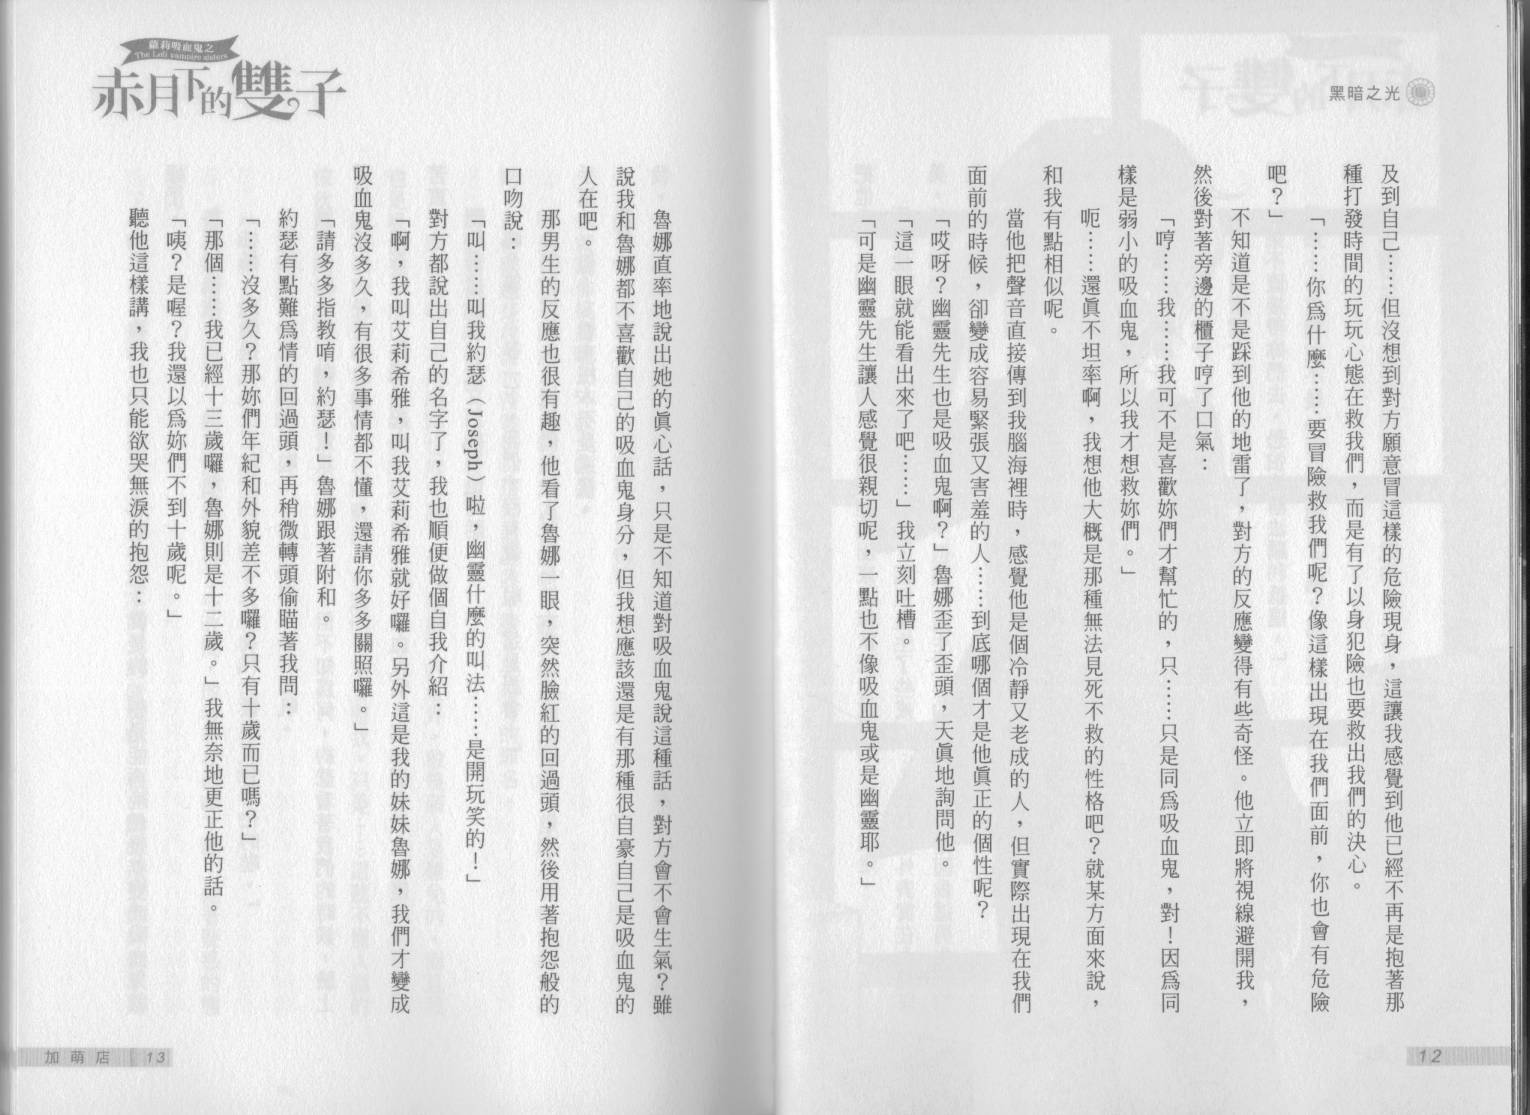 黑暗之光
及到自己……但沒想到對方願意冒這樣的危險現身，這讓我感覺到他已經不再是抱著那
種打發時間的玩玩心態在救我們，而是有了以身犯險也要救出我們的決心。
「……你爲什麼……要冒險救我們呢？像這樣出現在我們面前，你也會有危險
吧？」
不知道是不是踩到他的地雷了，對方的反應變得有些奇怪。他立即將視線避開我，
然後對著旁邊的櫃子哼了口氣：
「哼……我……我可不是喜歡妳們才幫忙的，只……只是同爲吸血鬼，對！因爲同
樣是弱小的吸血鬼，所以我才想救妳們。」
呃……還眞不坦率啊，我想他大概是那種無法見死不救的性格吧？就某方面來說，
和我有點相似呢。
當他把聲音直接傳到我腦海裡時，感覺他是個冷靜又老成的人，但實際出現在我們
面前的時候，卻變成容易緊張又害羞的人……到底哪個才是他眞正的個性呢？
「哎呀？幽靈先生也是吸血鬼啊？」魯娜歪了歪頭，天眞地詢問他。
「這一眼就能看出來了吧……」我立刻吐槽。
「可是幽靈先生讓人感覺很親切呢，一點也不像吸血鬼或是幽靈耶。」
12
蘿莉吸血鬼之
The Loli vampire sisters
赤月下的雙子
魯娜直率地說出她的眞心話，只是不知道對吸血鬼說這種話，對方會不會生氣？雖
說我和魯娜都不喜歡自己的吸血鬼身分，但我想應該還是有那種很自豪自己是吸血鬼的
人在吧。
那男生的反應也很有趣，他看了魯娜一眼，突然臉紅的回過頭，然後用著抱怨般的
口吻說：
「叫……叫我約瑟（Joseph）啦，幽靈什麼的叫法……是開玩笑的！」
對方都說出自己的名字了，我也順便做個自我介紹：
「啊，我叫艾莉希雅，叫我艾莉希雅就好囉。另外這是我的妹妹魯娜，我們才變成
吸血鬼沒多久，有很多事情都不懂，還請你多多關照囉。」
「請多多指教唷，約瑟！」魯娜跟著附和。
約瑟有點難爲情的回過頭，再稍微轉頭偷瞄著我問：
「……沒多久？那妳們年紀和外貌差不多囉？只有十歲而已嗎？」
「那個……我已經十三歲囉，魯娜則是十二歲。」我無奈地更正他的話。
「咦？是喔？我還以爲妳們不到十歲呢。」
聽他這樣講，我也只能欲哭無淚的抱怨：
加萌店 13